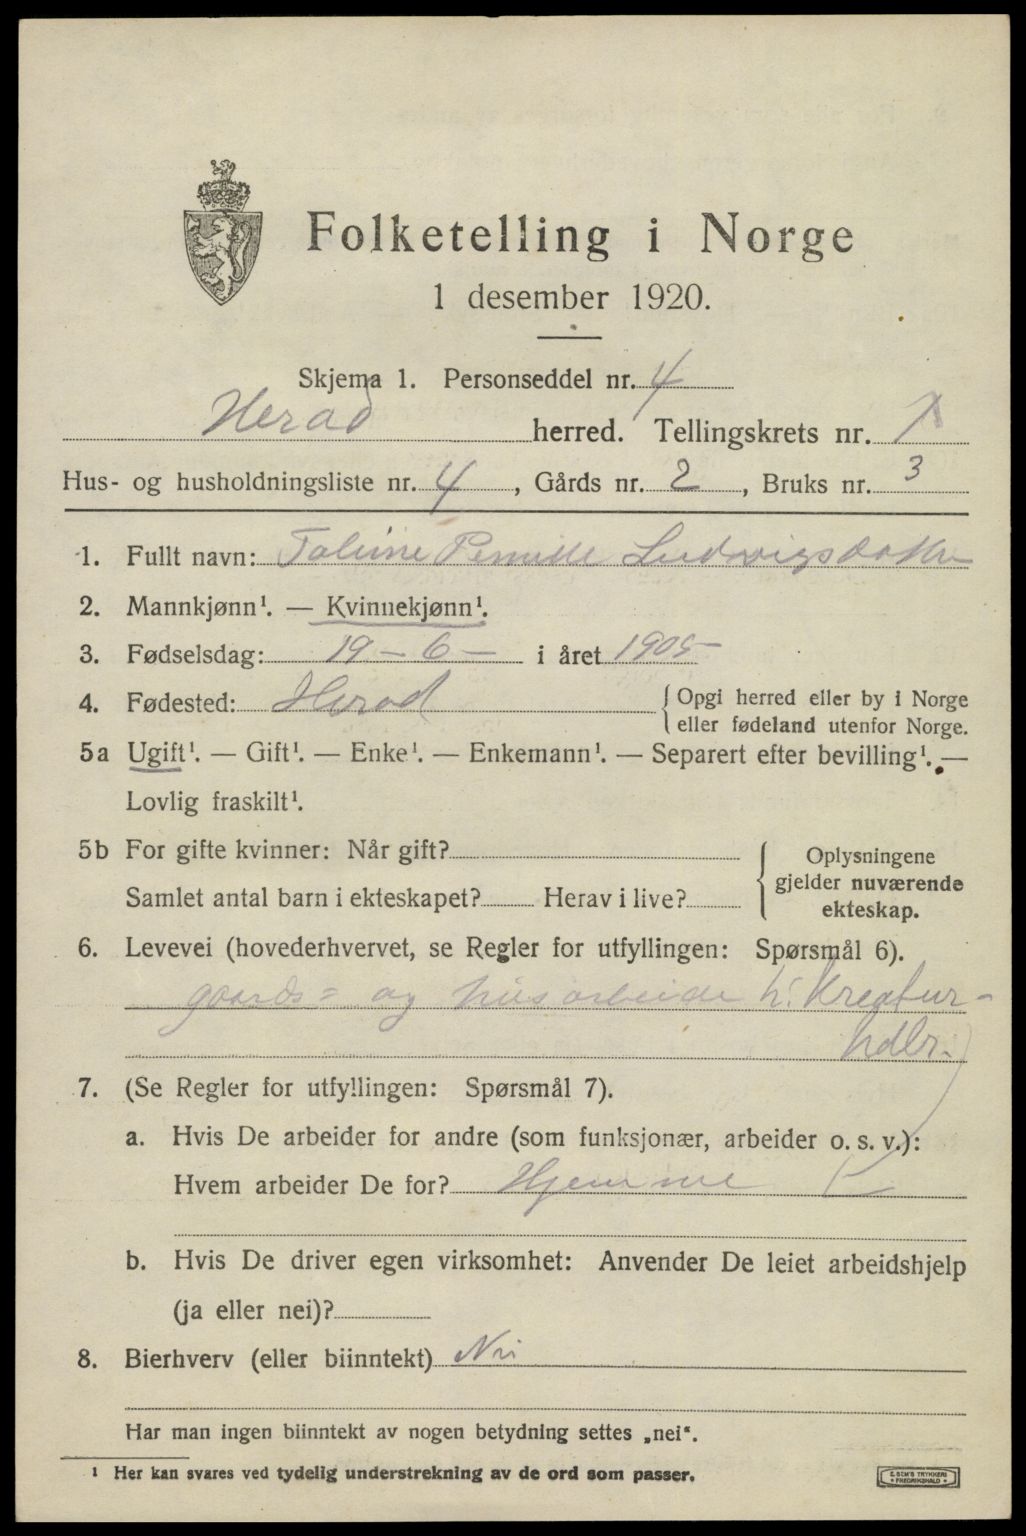 Folketelling i Norge
1 desember 1920.
Skjema 1. Personseddel nr. 4
Herad herred. Tellingskrets nr. 1
Hus- og husholdningsliste nr. 4, Gårds nr. 2, Bruks nr. 3
1. Fullt navn: Taline Pernille Ludvigsdatter
2. Mannkjønn¹. — Kvinnekjønn¹.
3. Fødselsdag: 19 – 6 – i året 1905
4. Fødested: Herad { Opgi herred eller by i Norge
eller fødeland utenfor Norge.
5a Ugift¹. — Gift¹. — Enke¹. — Enkemann¹. — Separert efter bevilling¹. —
Lovlig fraskilt¹.
5b For gifte kvinner: Når gift?
Samlet antal barn i ekteskapet? Herav i live?
{ Oplysningene
gjelder nuværende
ekteskap.
6. Levevei (hovederhvervet, se Regler for utfyllingen: Spørsmål 6).
gaards= og husarbeide h: Kreatur-
hdlr.
7. (Se Regler for utfyllingen: Spørsmål 7).
a. Hvis De arbeider for andre (som funksjonær, arbeider o. s. v.):
Hvem arbeider De for? Hjemme
b. Hvis De driver egen virksomhet: Anvender De leiet arbeidshjelp
(ja eller nei)?
8. Bierhverv (eller biinntekt) Nei
Har man ingen biinntekt av nogen betydning settes „nei“.
¹ Her kan svares ved tydelig understrekning av de ord som passer.
E. SEM'S TRYKKERI
FREDRIKSHALD